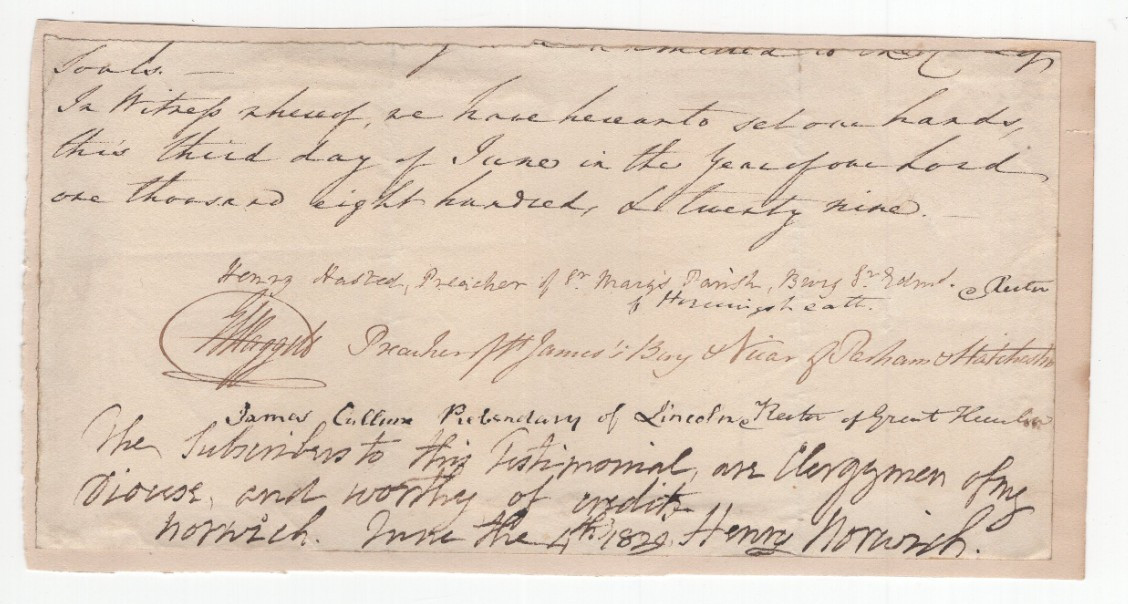 admitted to
Souls. —
In Witness whereof, we have hereunto set our hands,
this third day of June in the Year of our Lord
one thousand eight hundred, & twenty nine. —
Henry Hasted, Preacher of St. Mary's Parish, Bury St. Edmd. & Rector
of Horningsheath.
Preacher of St James's Bury & Vicar of Parham & Hatcheston
James Cullum Prebendary of Lincoln & Rector of Great Thurlow
The Subscribers to this Testimonial, are Clergymen of my
Diocese, and worthy of credit.
Norwich. June the 4th 1829 Henry Norwich.